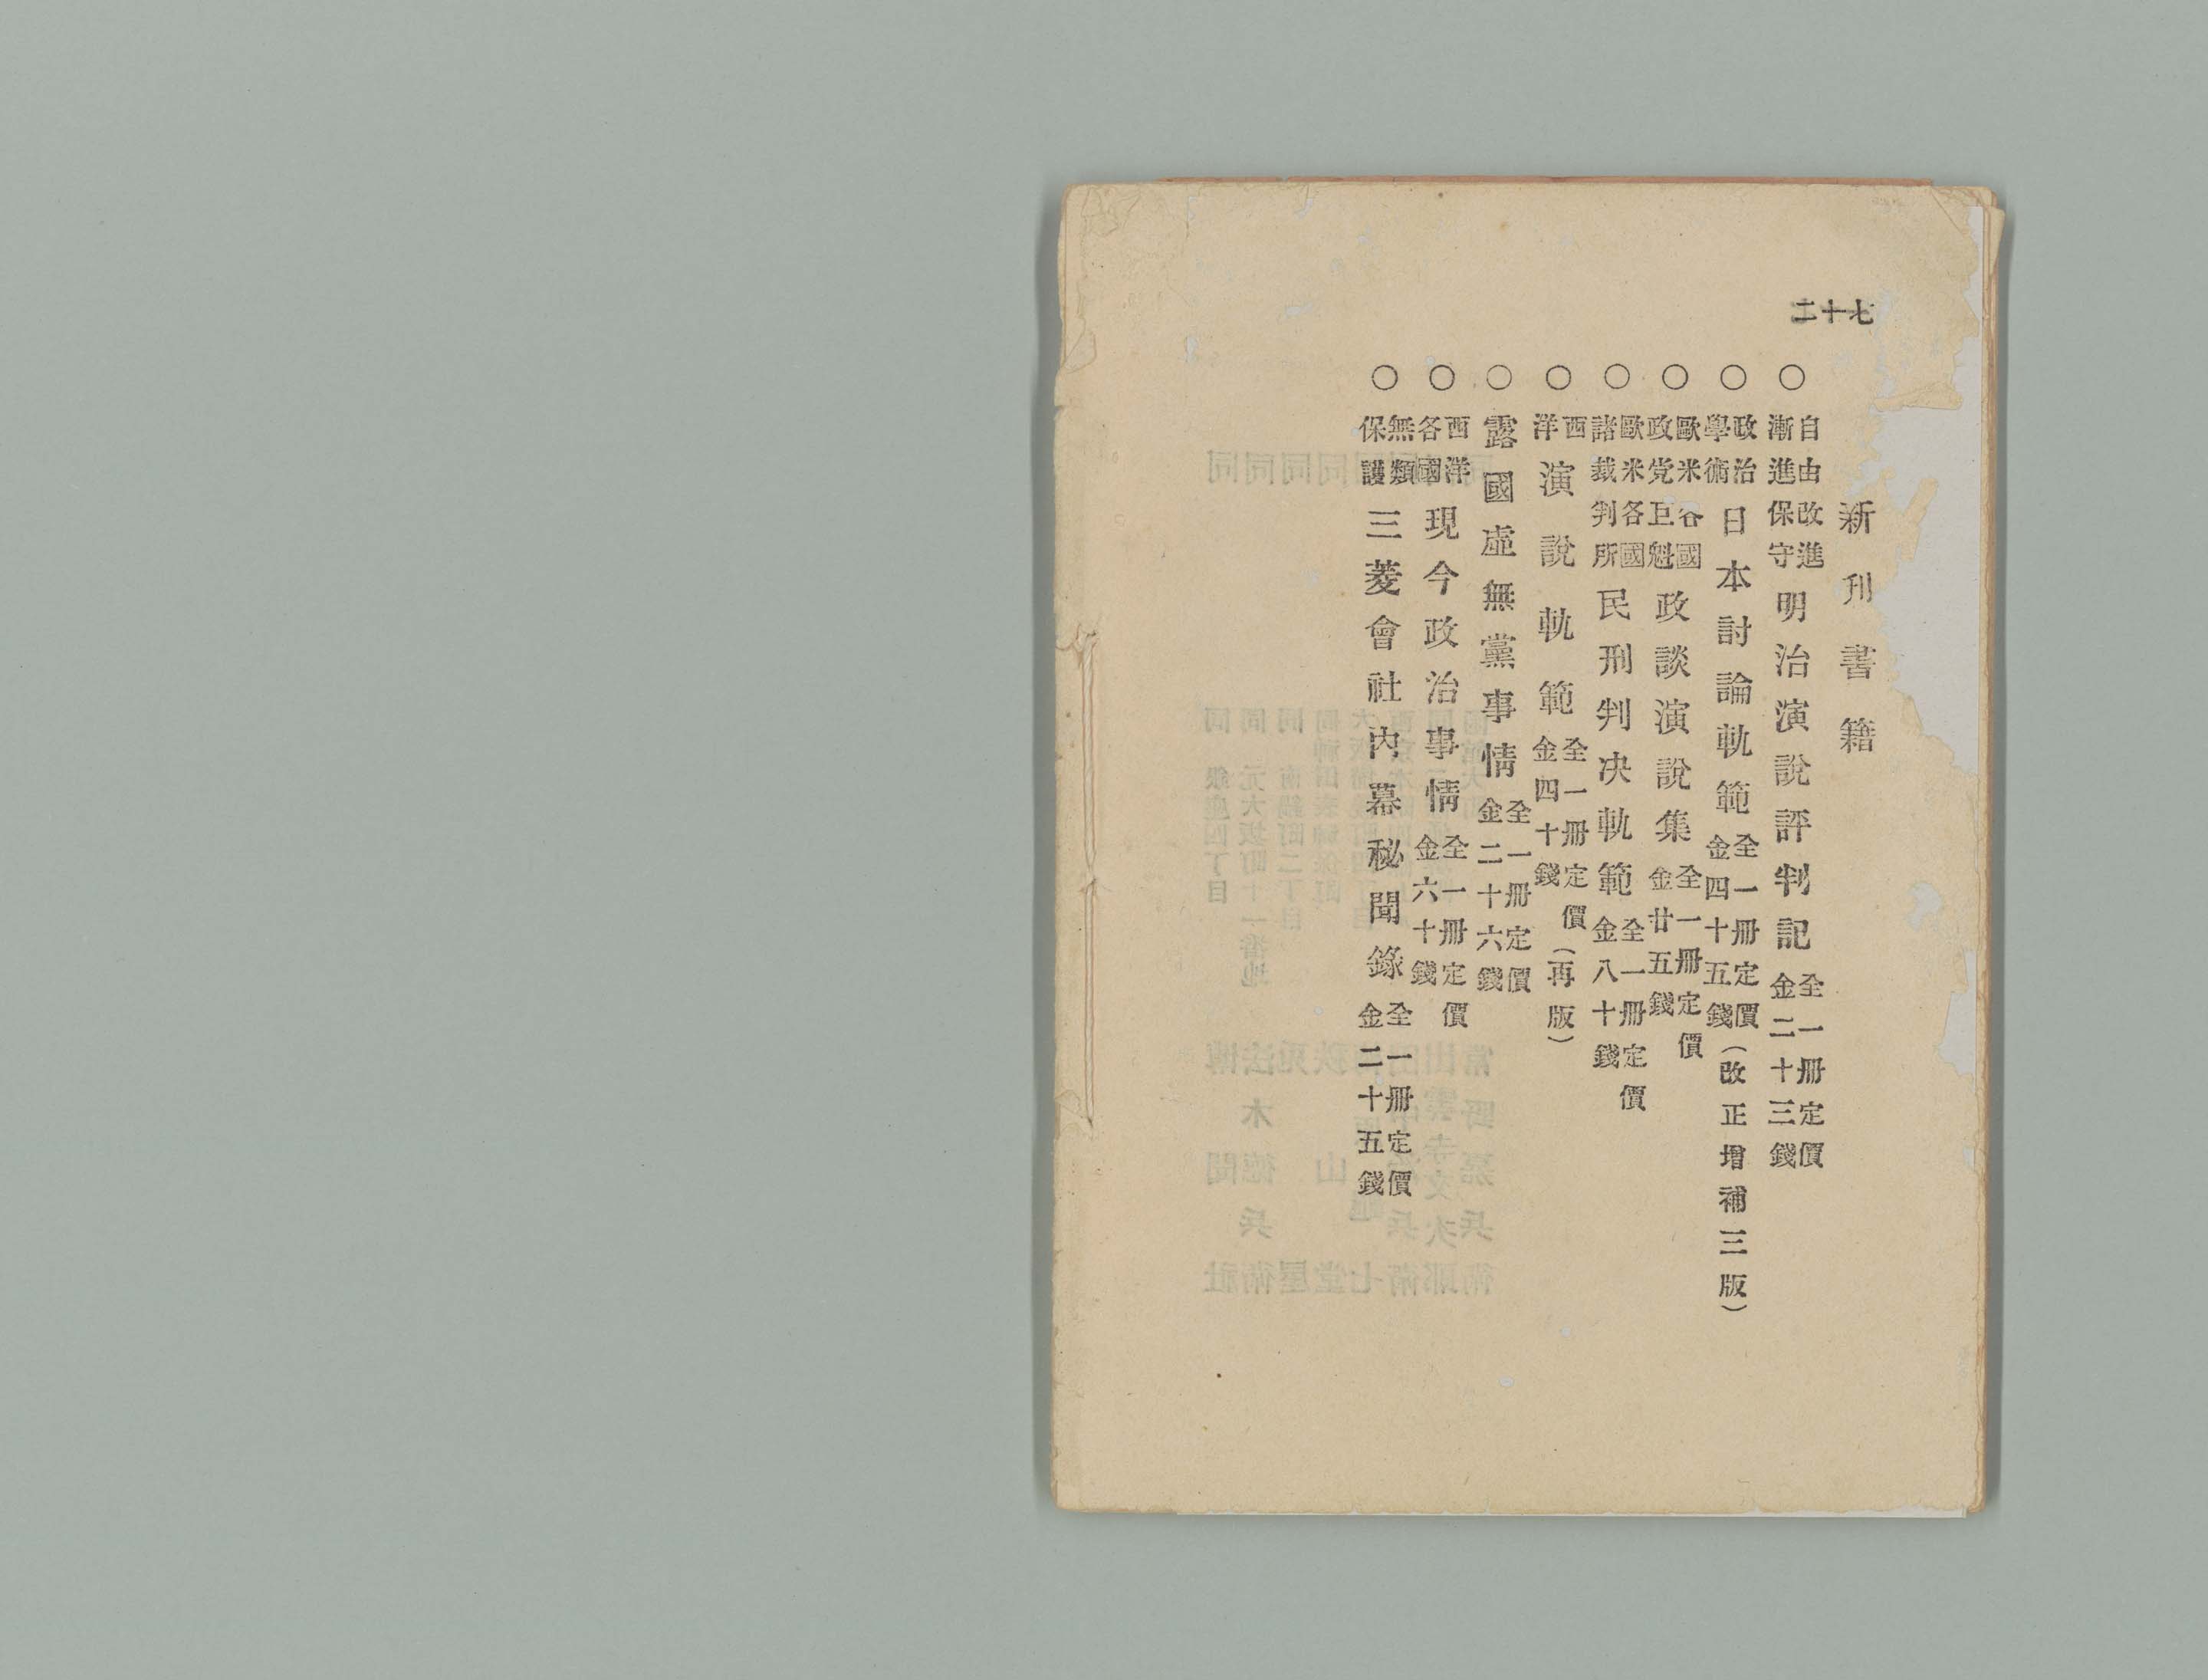 七十二
新刊書籍
○自由改進漸進保守明治演說評判記全一冊定價金二十三錢
○政治學術日本討論軌範全一冊定價金四十五錢(改正增補三版)
○歐米各國政党巨魁政談演說集全一冊定價金廿五錢
○歐米各國諸裁判所民刑判决軌範全一冊定價金八十錢
○西洋演說軌範全一冊定價金四十錢(再版)
○露國虛無黨事情全一冊定價金二十六錢
○西洋各國現今政治事情全一冊定價金六十錢
○無類保護三菱會社內幕秘聞錄全一冊定價金二十五錢